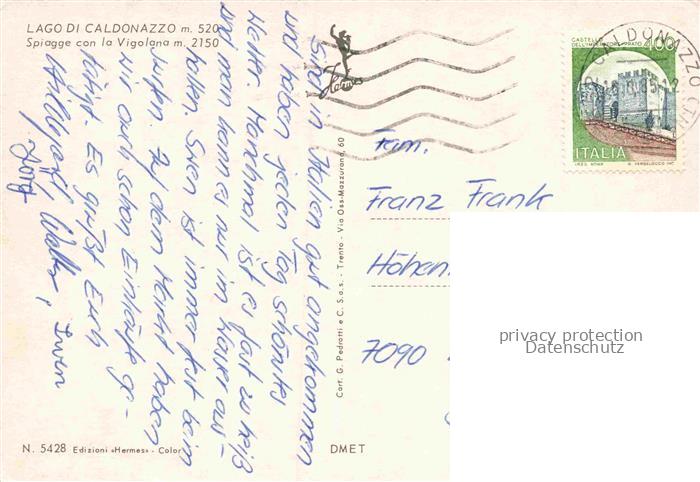 LAGO DI CALDONAZZO m. 520
Spiagge con la Vigolana m. 2150
Sind in Italien gut angekommen
und haben jeden Tag schönstes
Wetter. Manchmal ist es fast zu heiß
und man kann es nur im Wasser aus-
halten. Sven ist immer fest beim
Auf dem Markt haben
wir auch schon Einkäufe ge-
tätigt. Es grüßt Euch
Walter, Irwen
Jörg
Hermes
Cart. G. Pedrotti e C. S.a.s. - Trento - Via Oss-Mazzurana, 60
Fam.
Franz Frank
Höhen
7090
CASTELLO
DELL'IMPERATORE PRATO 400
ITALIA
CALDONAZZO
privacy protection
Datenschutz
N. 5428 Edizioni «Hermes» - Color
DMET